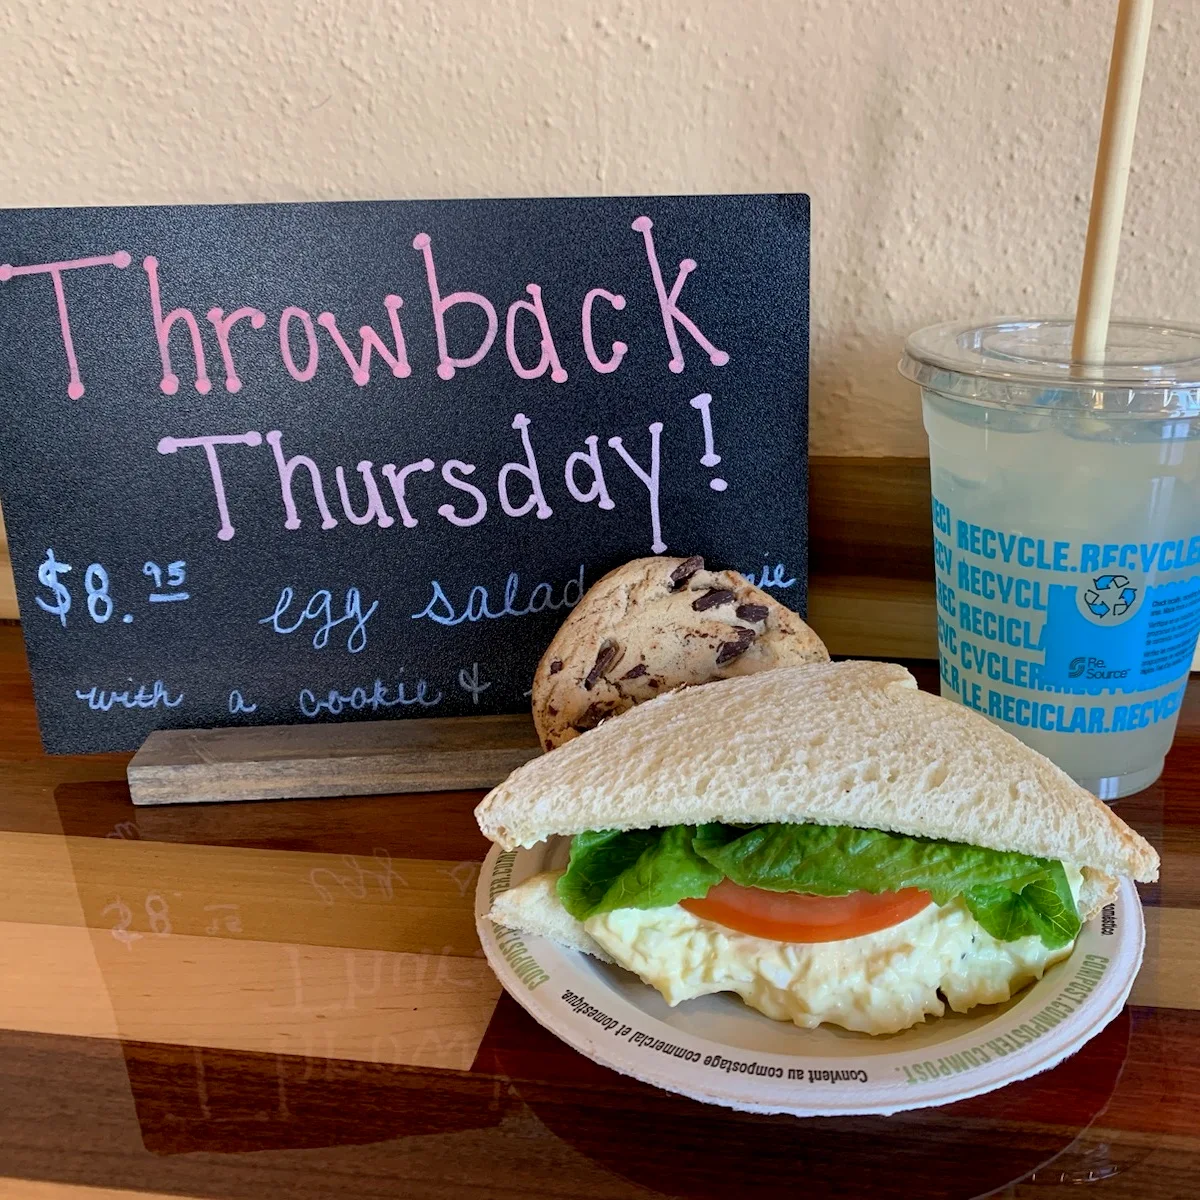 Throwback
Thursday!
$8.95 egg salad
with a cookie &
RECYCLE.RECYCLE
RECYCL
RECICLA
CYCLER.
LE.RECICLAR.RECYC
Re.
Source
COMPOST.COMPOST.
Convient au compostage commercial et domestique.